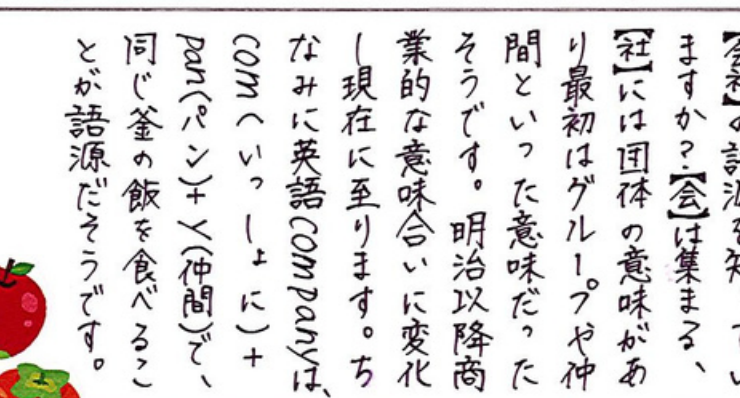 【会社】の語源を知ってい
ますか？【会】は集まる、
【社】には団体の意味があ
り最初はグループや仲
間といった意味だった
そうです。明治以降商
業的な意味合いに変化
し現在に至ります。ち
なみに英語companyは、
com(いっしょに)+
pan(パン)+y(仲間)で、
同じ釜の飯を食べるこ
とが語源だそうです。